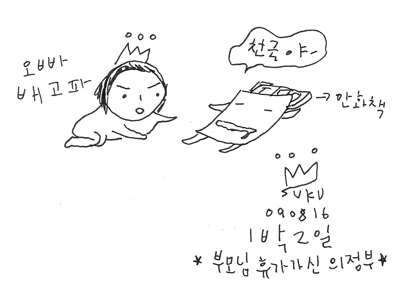 오빠
배고파
천글아~
→ 만화책
SUKU
090816
1박2일
* 부모님 휴가가신 의정부 *